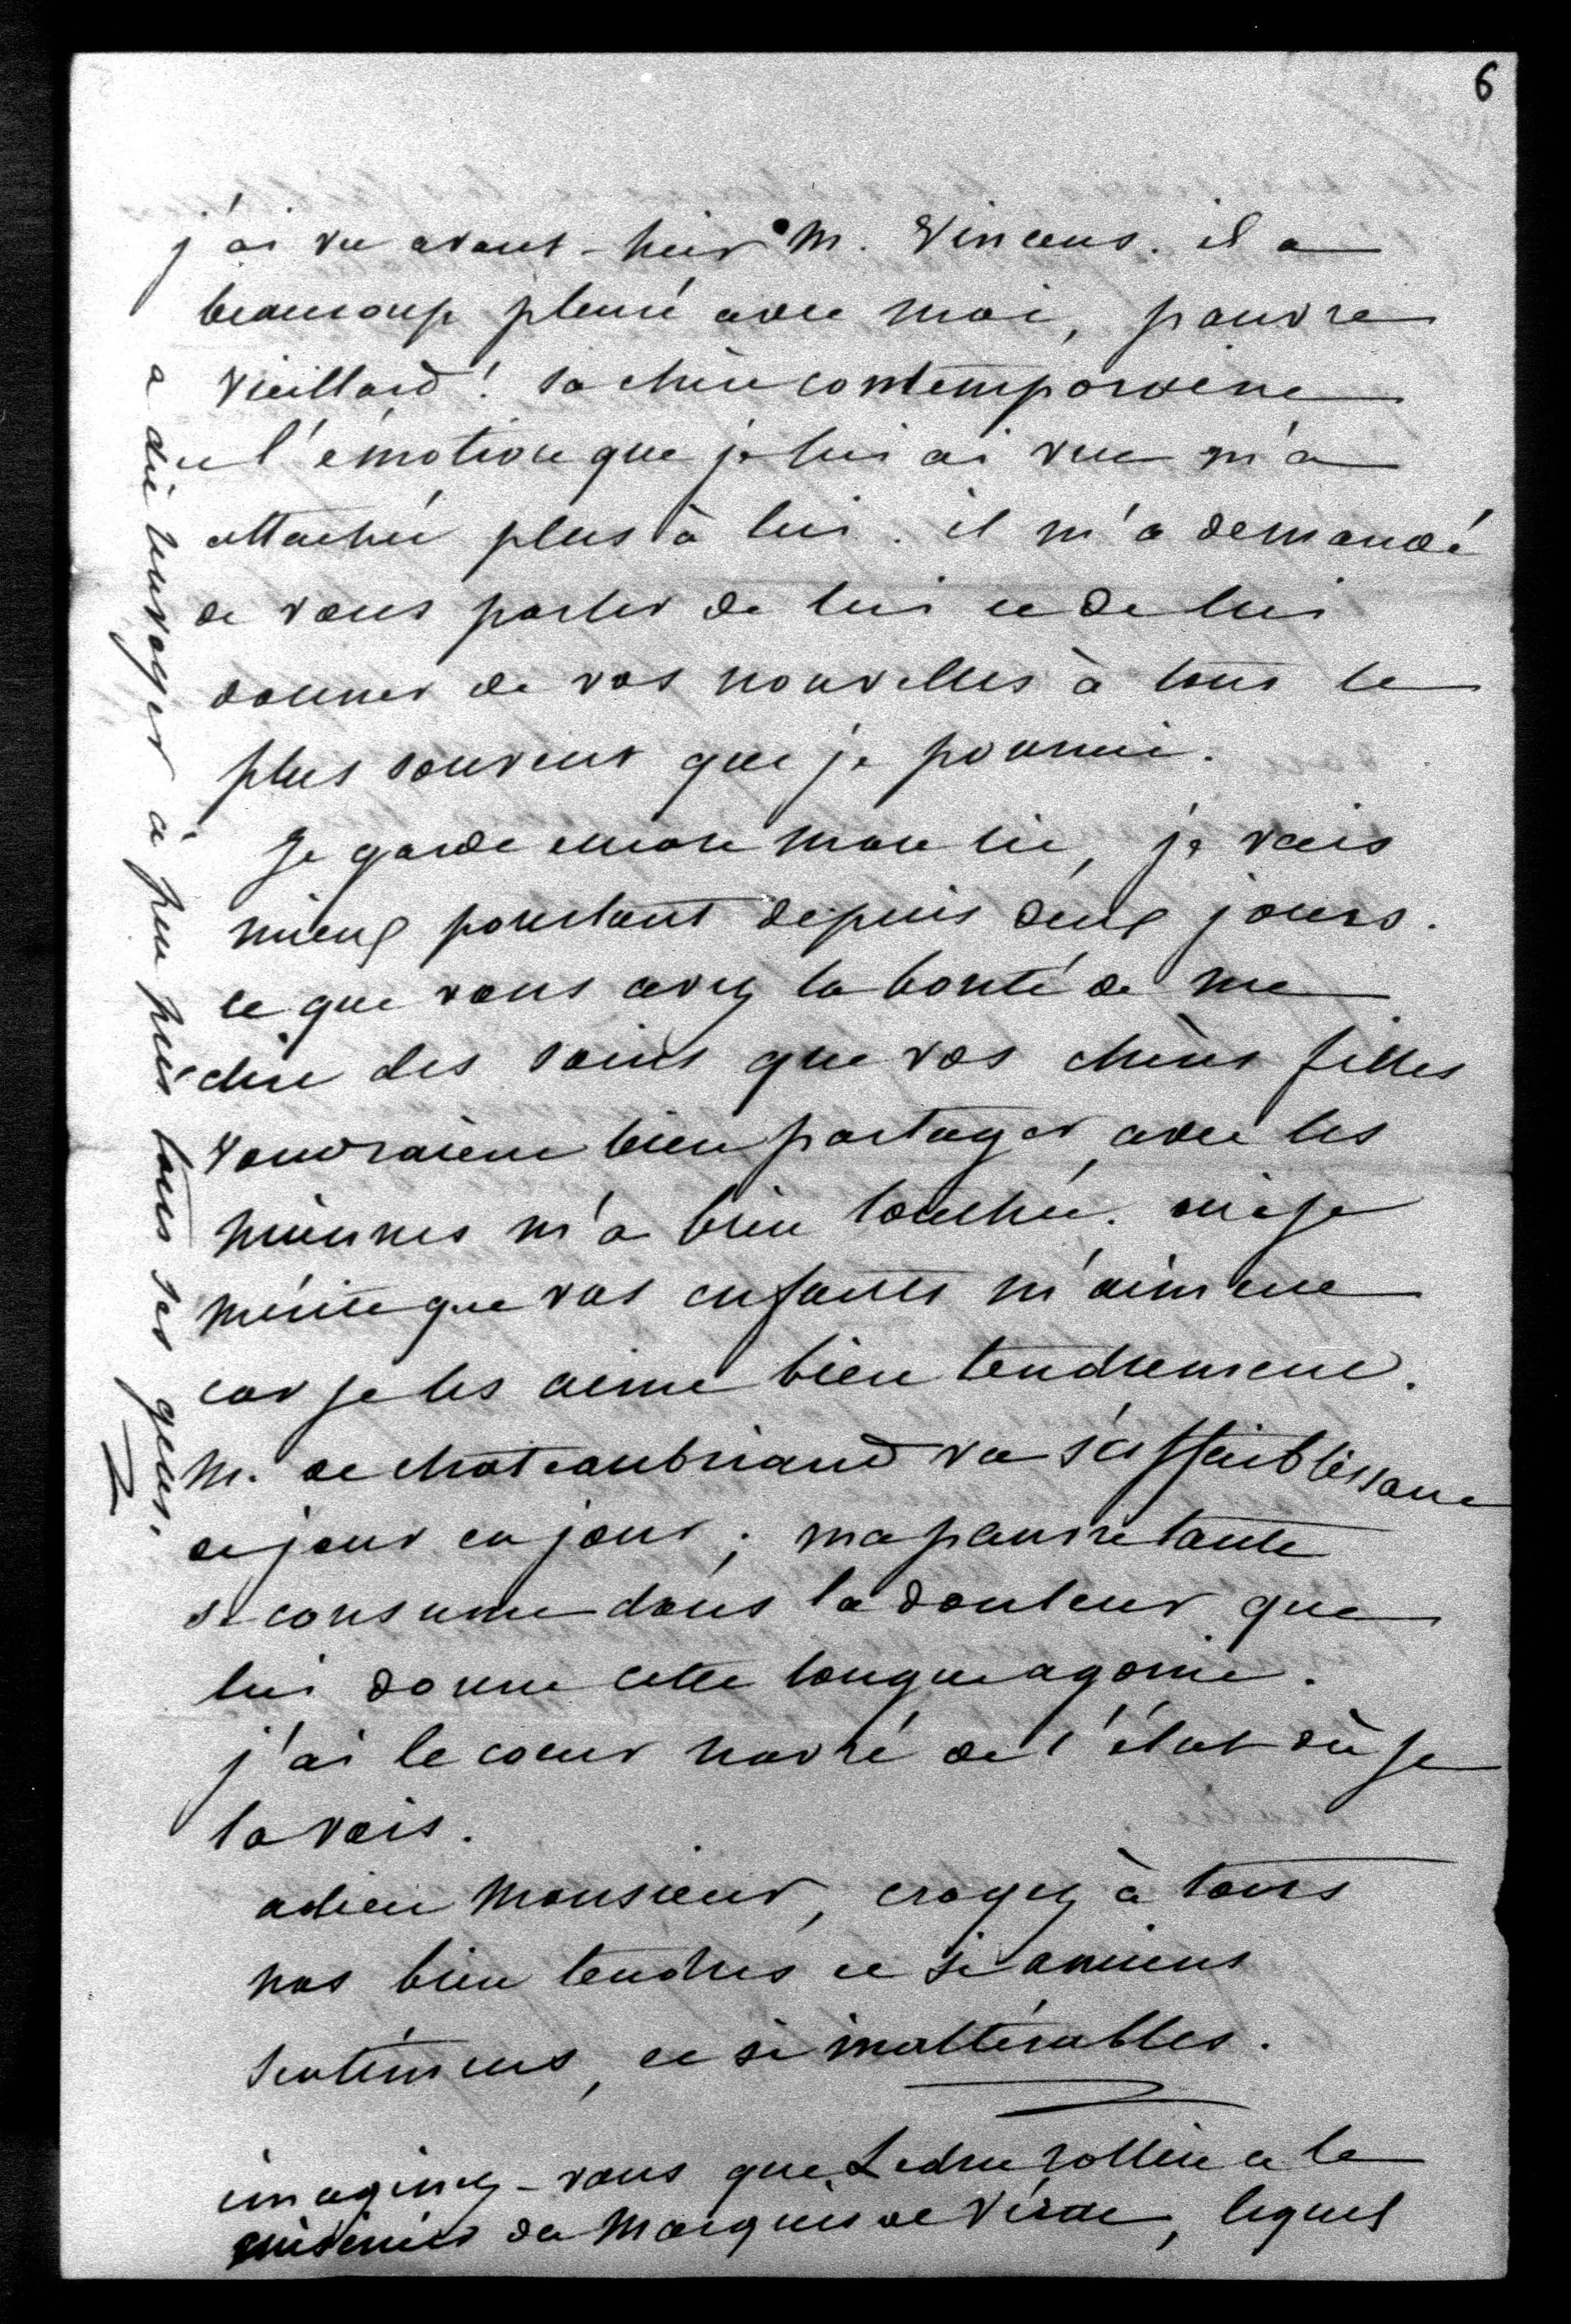 6
j'ai vu avant-hier M. Vincens. il a
beaucoup pleuré avec moi, pauvre
vieillard ! sa chère contemporaine
et l'émotion que je lui ai vue m'a
attachée plus à lui. il m'a demandé
de vous parler de lui et de lui
donner de vos nouvelles à tous le
plus souvent que je pourrai.
Je garde encore mon lit, je vais
mieux pourtant depuis deux jours.
ce que vous avez la bonté de me
dire des soins que vos chères filles
voudraient bien partager avec les
miennes m'a bien touchée. oui je
mérite que vos enfants m'aiment
car je les aime bien tendrement.
M. de chateaubriand va s'affaiblissant
de jour en jour ; ma pauvre tante
se consume dans la douleur que
lui donne cette longue agonie.
j'ai le coeur navré de l'état où je
la vois.
adieu Monsieur, croyez à tous
nos bien tendres et si anciens
sentimens, et si inaltérables.
imaginez-vous que Ledru rollin a le
cuisinier du Marquis de , lequel
a dit envoyer à peu près tous ses gens.